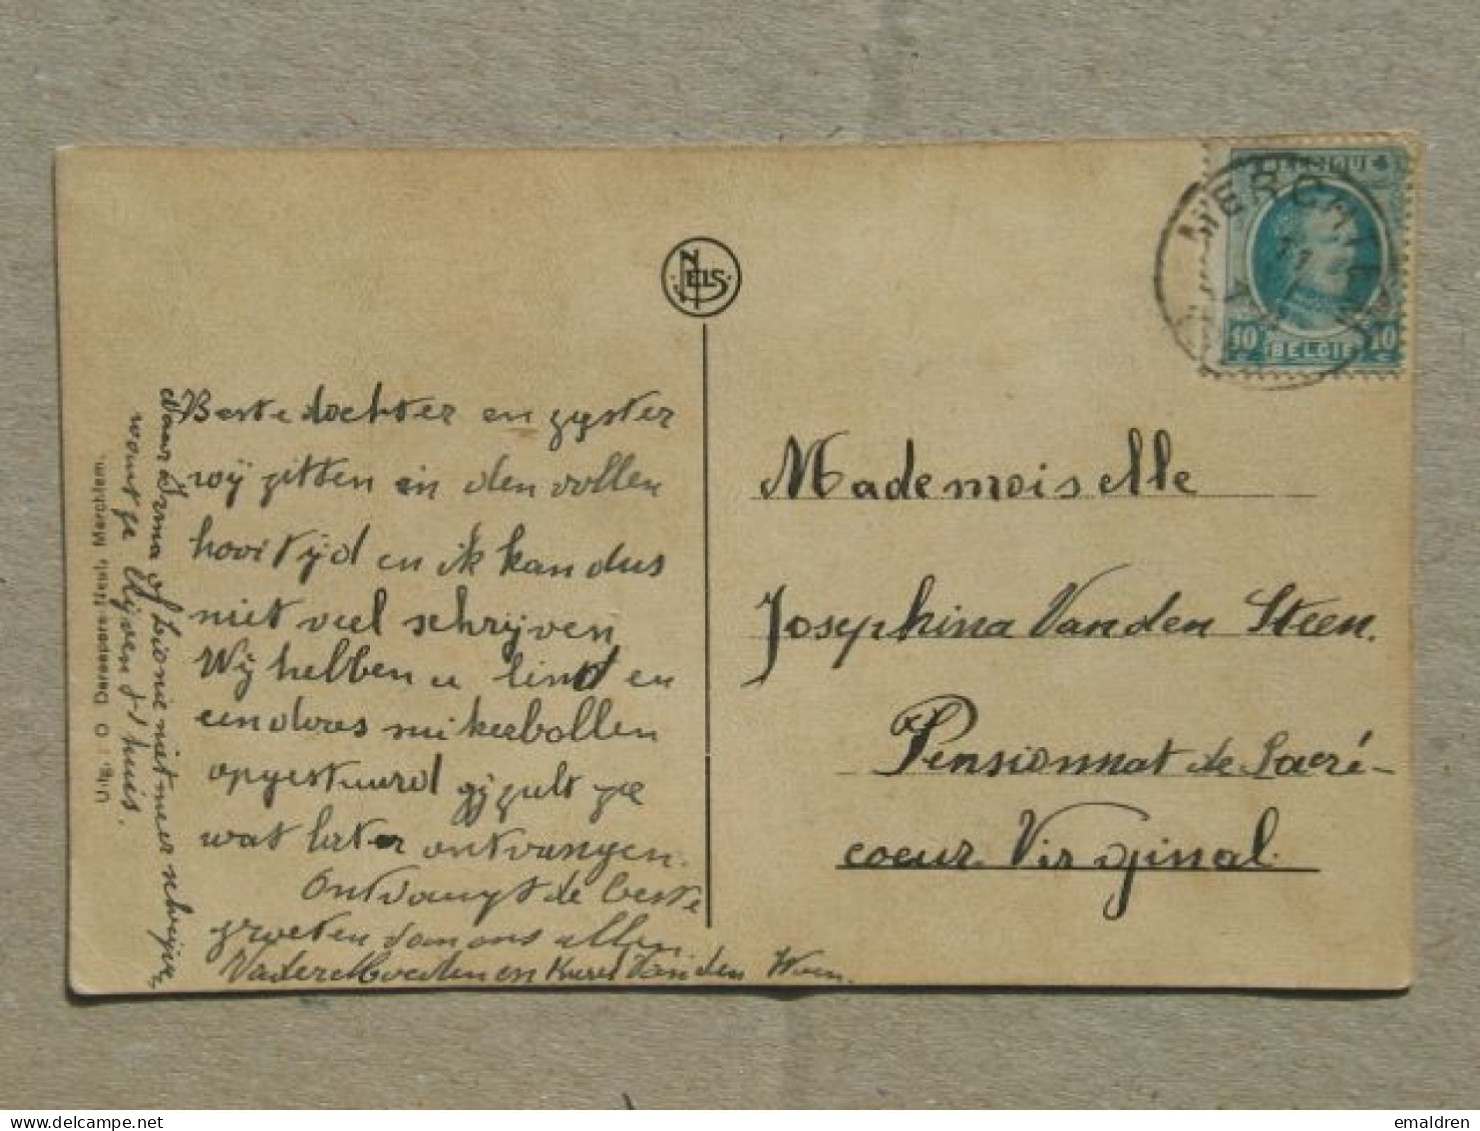 Beste dochter en zyster
wij zitten in den vollen
hooitijd en ik kan dus
niet veel schrijven
Wij hebben u lind en
een doos suikerbollen
opgestuurd gij zult ze
wat later ontvangen.
Ontvangt de beste
groeten van ons allen
Vader Moeder en Karel Van den
Naar Irma of Leonie niet meer schrijven
want ze blijven t' huis.
Uitg. : O. Merchtem.
NELS
MERCHTEM
11
BELGIQUE
10 c
BELGIE
10 c
Mademoiselle
Josephina Van den Steen.
Pensionnat de Sacré-
coeur Virginal.
emaldren